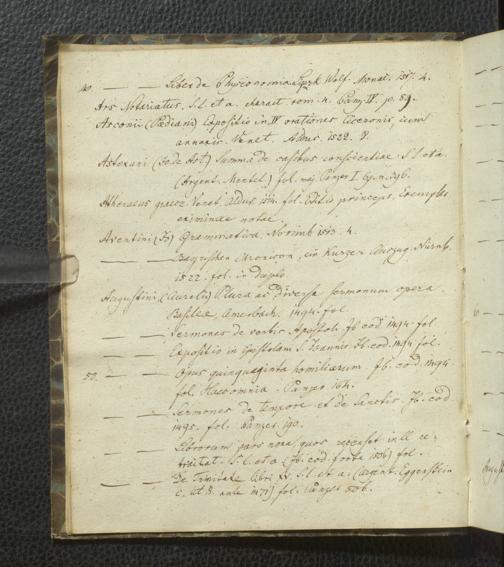 40. — — Liber de Physionomia Lipzk Wolf. Monac. 1517. 4.
Ars Notariatus. S. l. et a. charact. rom. 4. Panz. IV. p. 89.
Asconii (Pædiani) Expositio in IV orationes Ciceronis, cum
annotis. Venet. Aldus. 1522. 8.
Astexani (Fr. de Ast) Summa de casibus conscientiae. S. l. et a.
(Argent. Mentel.) fol. maj. Panzer I.
Athenaeus graece. Venet. Aldus. 1514. fol. Editio princeps. Exemplar
eximiae notae.
Aventini (Jo) Grammatica. Norimb. 1513. 4.
— — Bayrischer Chronicon, ein kurzer Auszug. Nürnb.
1522. fol. in duplo.
Augustini (Aurelii) Plura ac diversa sermonum opera
Basileæ, Amerbach. 1494. fol.
— — Sermones de verbis Apostoli. Ib. eod. 1494. fol
— — Expositio in Epistolam S. Joannis. Ib. eod. 1494 fol.
50. — — Opus quinquaginta homiliarum. Ib. eod. 1494
fol. Haec omnia Panzer 164.
— — Sermones de tempore et de Sanctis. Ib. eod.
1495. fol. Panzer 190.
— — Librorum pars nona, quos recenset in II re-
tractat. S. l. et a (Ib. eod. forte 1506) fol.
— — De Trinitate libri XV. S. l. et a. (Argent. Eggenstein
c. ut d. ante 1471) fol. Panzer 506.